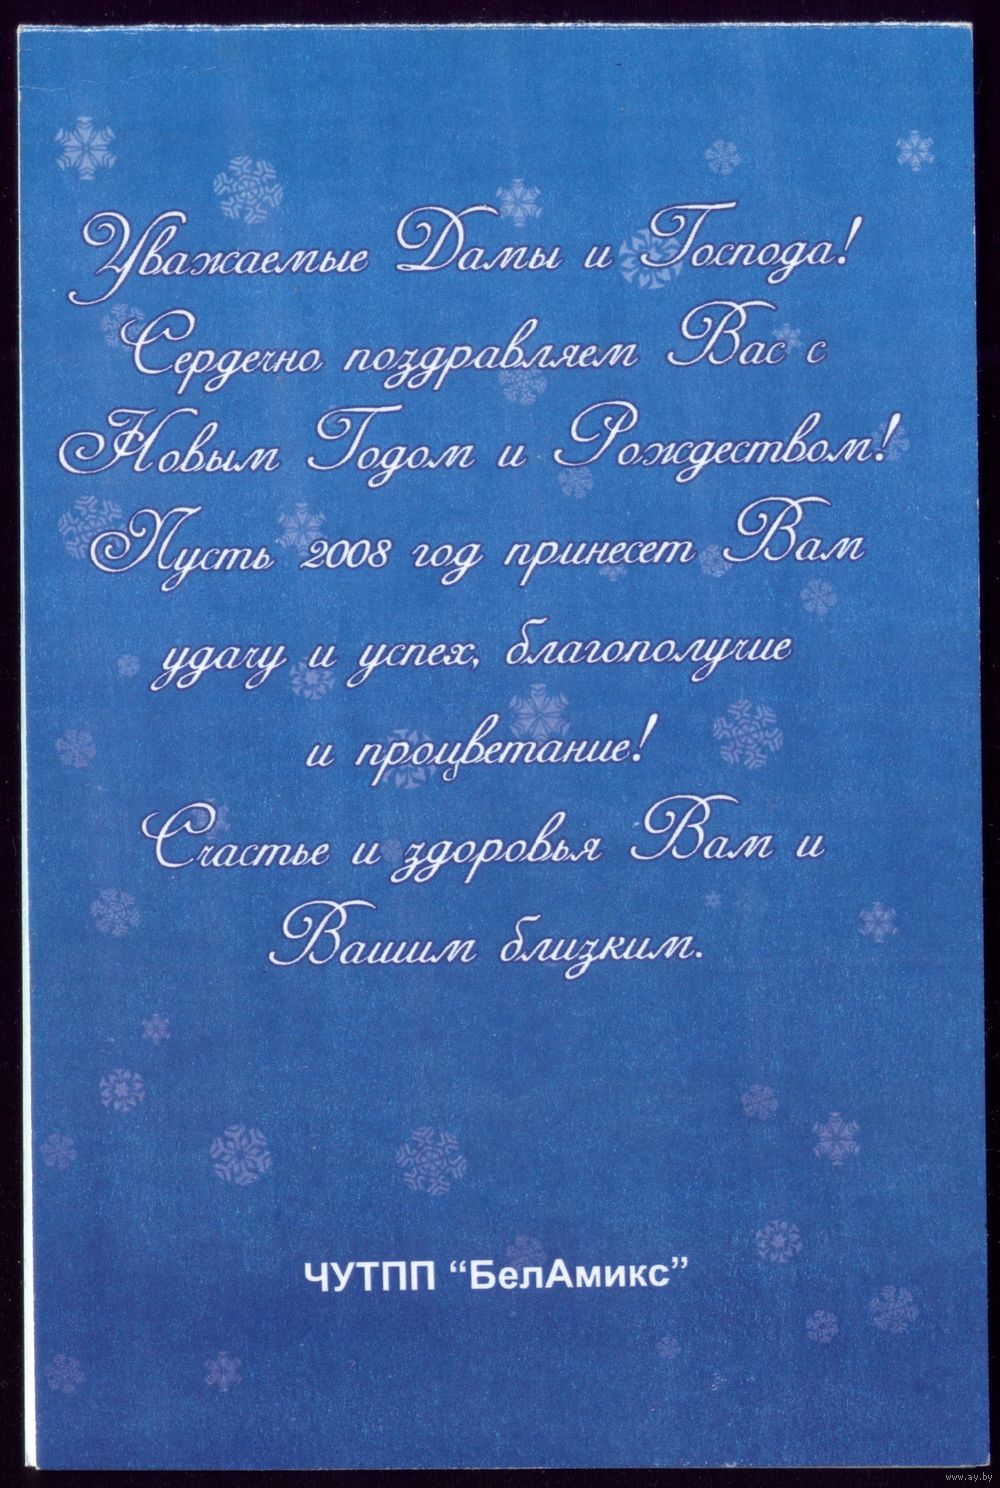 Уважаемые Дамы и Господа!
Сердечно поздравляем Вас с
Новым Годом и Рождеством!
Пусть 2008 год принесет Вам
удачу и успех, благополучие
и процветание!
Счастье и здоровья Вам и
Вашим близким.
ЧУТПП “БелАмикс”
www.ay.by